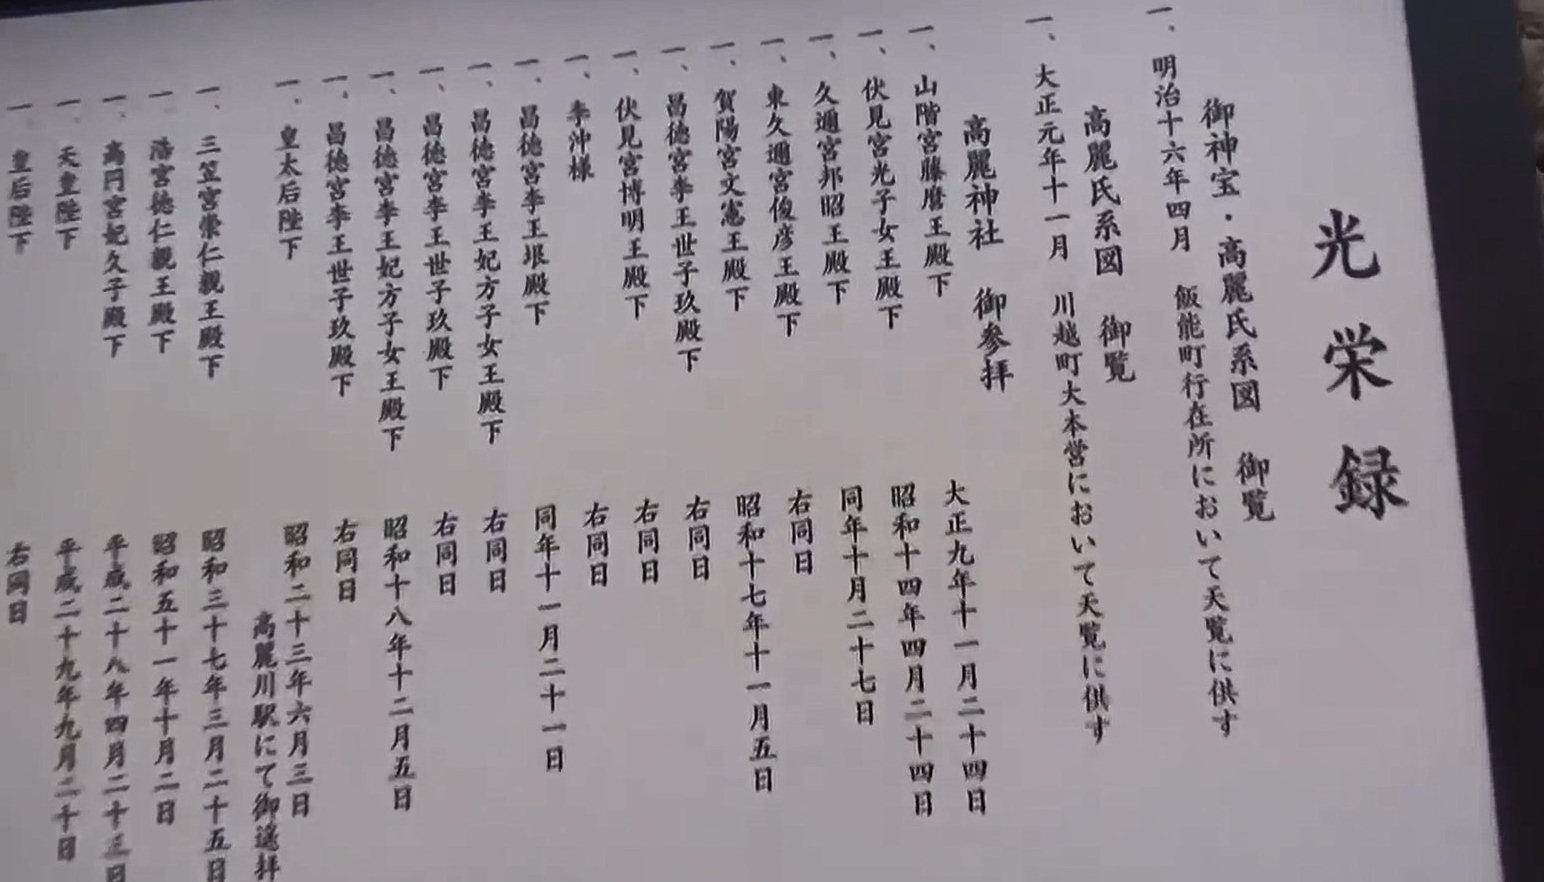 光栄録
御神宝・高麗氏系図 御覧
一、明治十六年四月 飯能町行在所において天覧に供す
高麗氏系図 御覧
一、大正元年十一月 川越町大本営において天覧に供す
高麗神社 御参拝
一、山階宮藤麿王殿下 大正九年十一月二十四日
一、伏見宮光子女王殿下 昭和十四年四月二十四日
一、久邇宮邦昭王殿下 同年十月二十七日
一、東久邇宮俊彦王殿下 右同日
一、賀陽宮文憲王殿下 昭和十七年十一月五日
一、昌徳宮李王世子玖殿下 右同日
一、伏見宮博明王殿下 右同日
一、李沖様 右同日
一、昌徳宮李王垠殿下 同年十一月二十一日
一、昌徳宮李王妃方子女王殿下 右同日
一、昌徳宮李王世子玖殿下 右同日
一、昌徳宮李王妃方子女王殿下 昭和十八年十二月五日
一、昌徳宮李王世子玖殿下 右同日
一、皇太后陛下 昭和二十三年六月三日
高麗川駅にて御遙拝
一、三笠宮崇仁親王殿下 昭和三十七年三月二十五日
一、浩宮徳仁親王殿下 昭和五十一年十月二日
一、高円宮妃久子殿下 平成二十八年四月二十三日
一、天皇陛下 平成二十九年九月二十日
一、皇后陛下 右同日